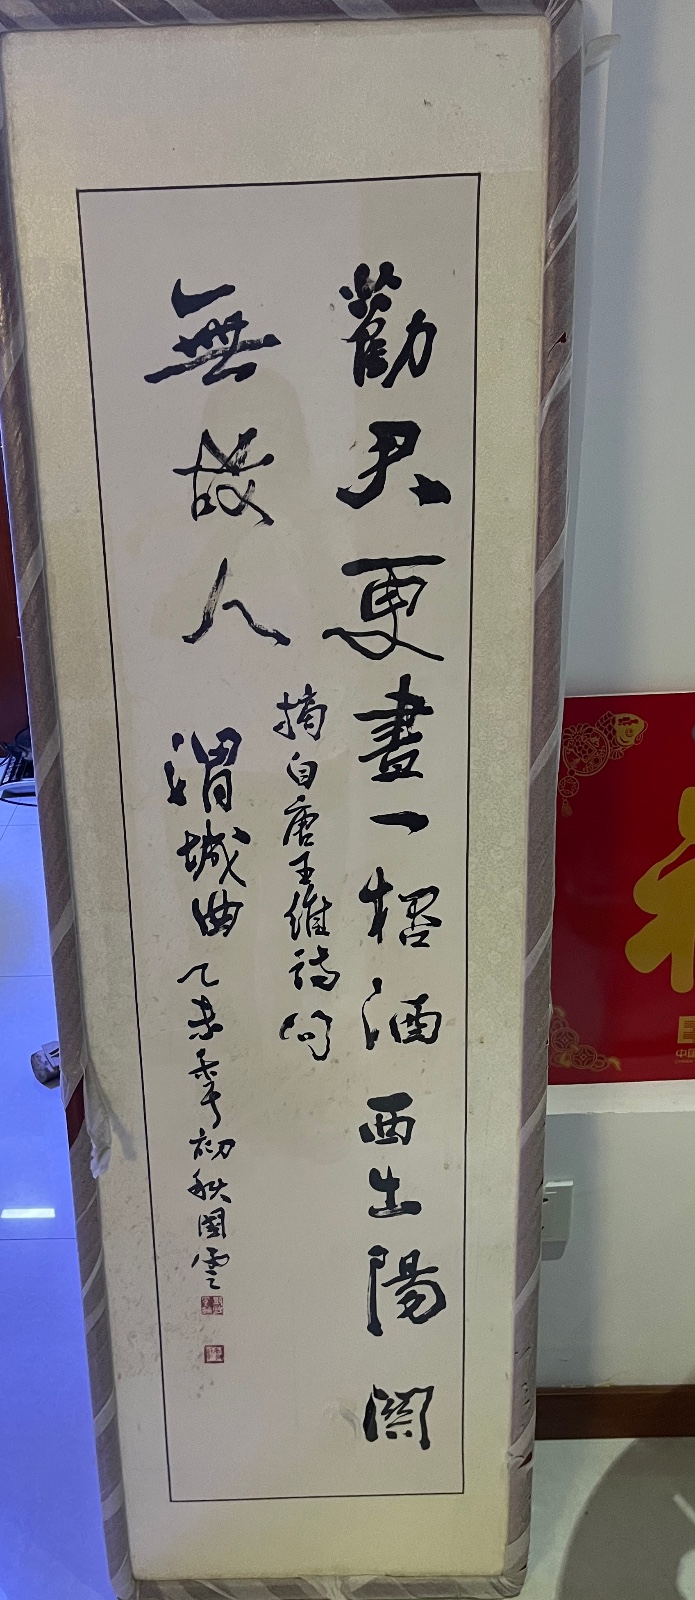 勸君更盡一桮酒西出陽関
無故人
摘自唐王維詩句
渭城曲
乙未秊初秋國雲
福
中国